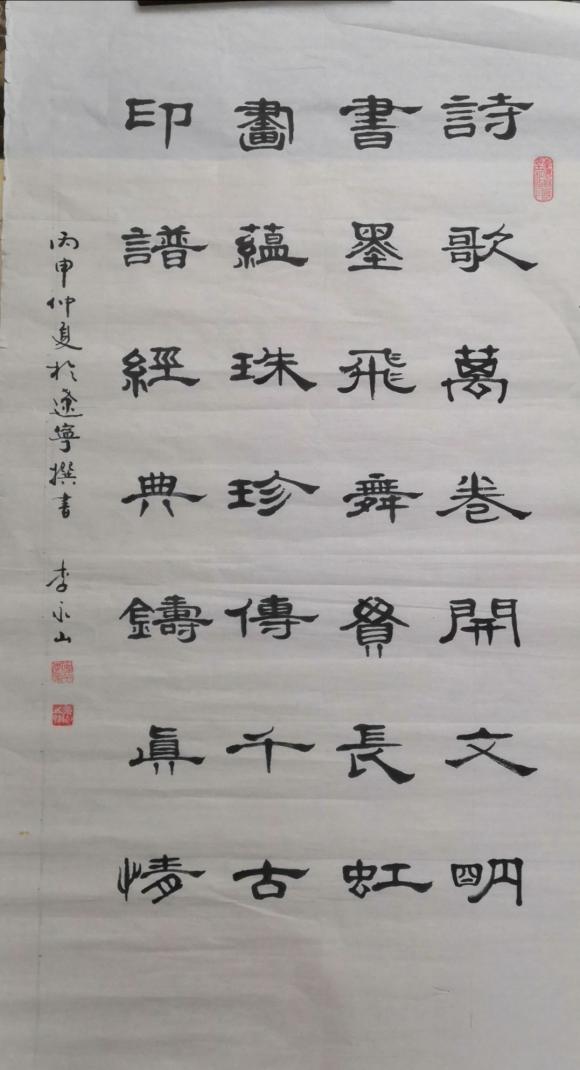 詩歌萬卷開文明
書墨飛舞貫長虹
畫蘊珠珍傳千古
印譜經典鑄眞情
丙申仲夏於遼寧撰書 李永山